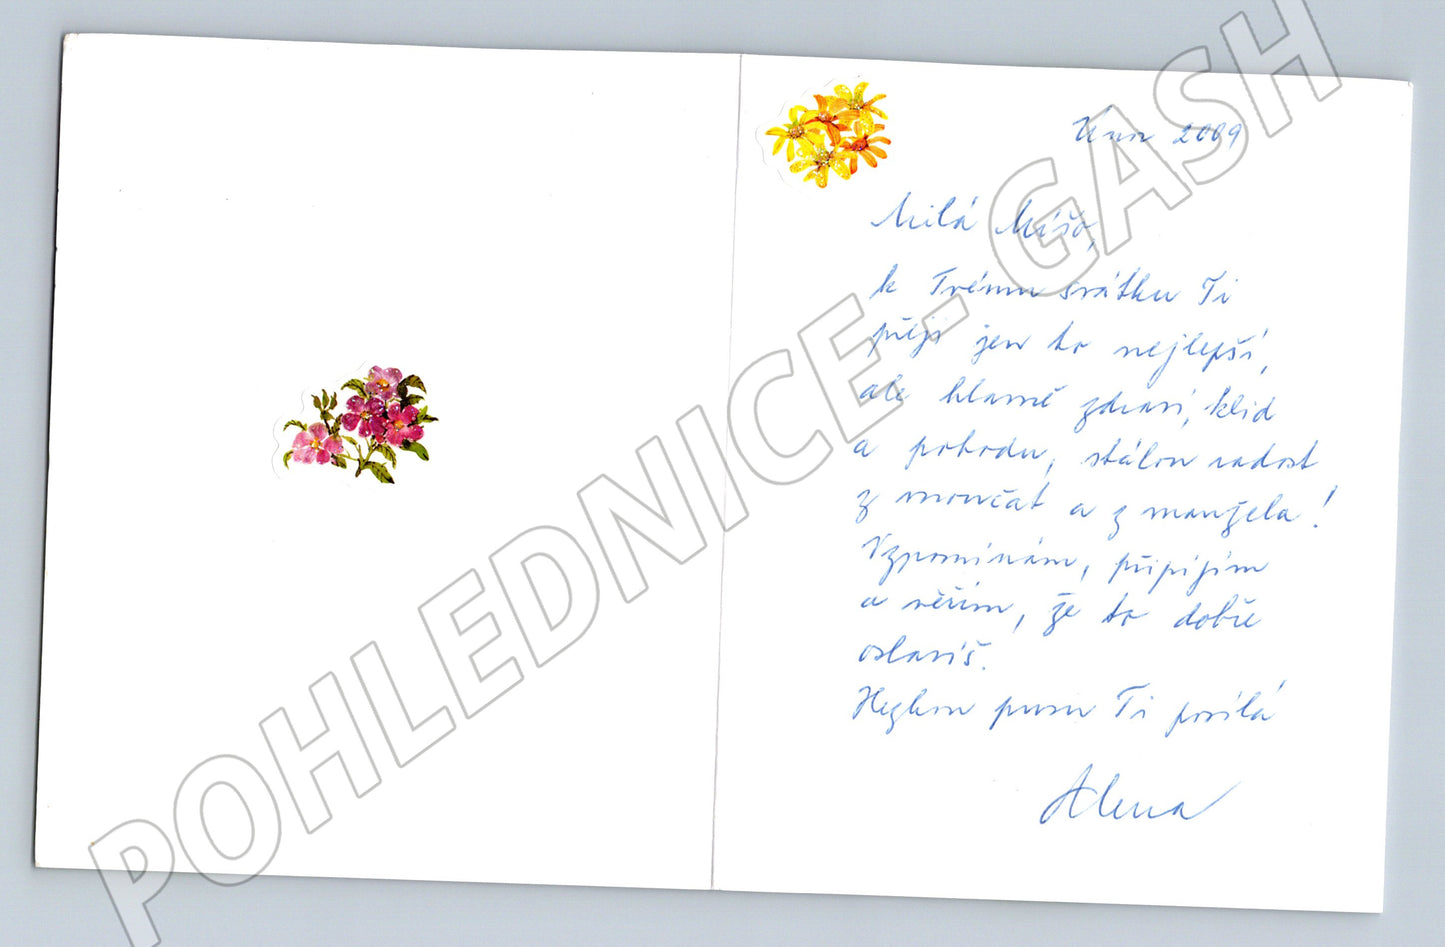 Únor 2009
Milá Míšo,
k Tvému svátku Ti
přeji jen to nejlepší,
ale hlavně zdraví, klid
a pohodu, stálou radost
z vnoučat a z manžela!
Vzpomínám, připíjím
a věřím, že to dobře
oslavíš.
Hezkou pusu Ti posílá
Alena
POHLEDNICE - GASH